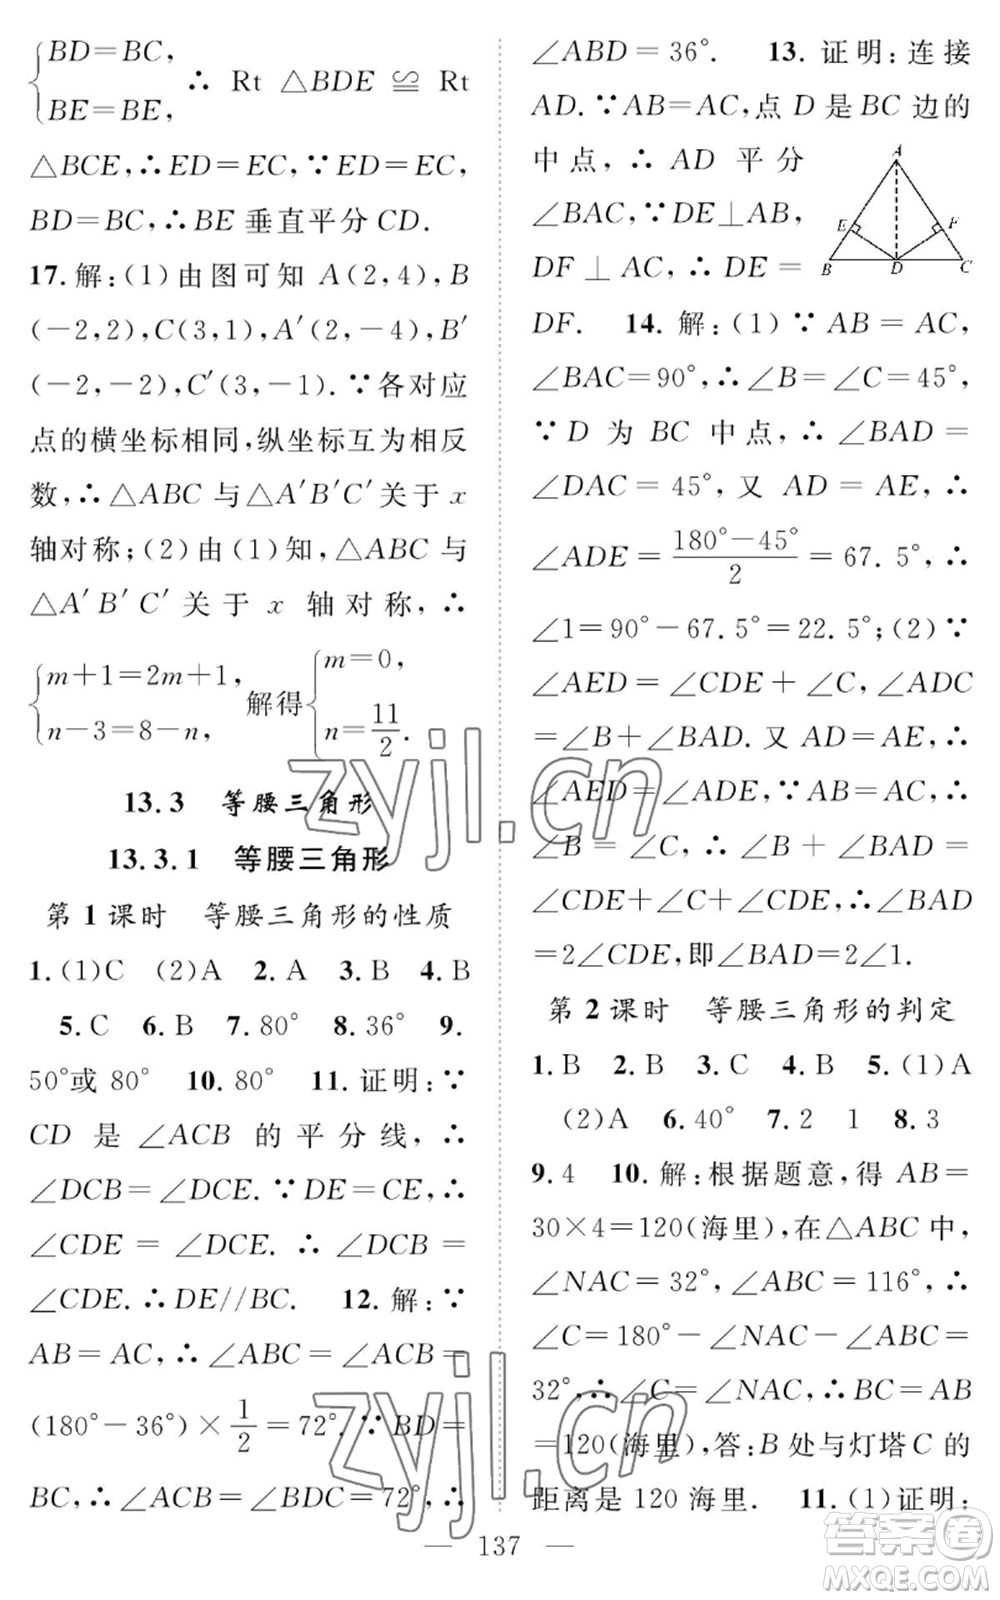 {BD=BC, BE=BE, ∴ Rt △BDE ≌ Rt
△BCE,∴ED=EC,∵ED=EC,
BD=BC,∴BE垂直平分CD.
17.解:(1)由图可知A(2,4),B
(-2,2),C(3,1),A′(2,-4),B′
(-2,-2),C′(3,-1).∵各对应
点的横坐标相同,纵坐标互为相反
数,∴△ABC与△A′B′C′关于x
轴对称;(2)由(1)知,△ABC与
△A′B′C′关于x轴对称,∴
{m+1=2m+1, n-3=8-n, 解得{m=0, n=11/2.
13.3 等腰三角形
13.3.1 等腰三角形
第1课时 等腰三角形的性质
1.(1)C (2)A 2.A 3.B 4.B
5.C 6.B 7.80° 8.36° 9.
50°或80° 10.80° 11.证明:∵
CD是∠ACB的平分线,∴
∠DCB=∠DCE.∵DE=CE,∴
∠CDE=∠DCE.∴∠DCB=
∠CDE.∴DE//BC. 12.解:∵
AB=AC,∴∠ABC=∠ACB=
(180°-36°)×1/2=72°,∵BD=
BC,∴∠ACB=∠BDC=72°,∴
∠ABD=36°. 13.证明:连接
AD.∵AB=AC,点D是BC边的
中点,∴AD平分
∠BAC,∵DE⊥AB,
DF⊥AC,∴DE=
A
E
F
B
D
C
DF. 14.解:(1)∵AB=AC,
∠BAC=90°,∴∠B=∠C=45°,
∵D为BC中点,∴∠BAD=
∠DAC=45°,又AD=AE,∴
∠ADE=(180°-45°)/2=67.5°,∴
∠1=90°-67.5°=22.5°;(2)∵
∠AED=∠CDE+∠C,∠ADC
=∠B+∠BAD.又AD=AE,∴
∠AED=∠ADE,∵AB=AC,∴
∠B=∠C,∴∠B+∠BAD=
∠CDE+∠C+∠CDE,∴∠BAD
=2∠CDE,即∠BAD=2∠1.
第2课时 等腰三角形的判定
1.B 2.B 3.C 4.B 5.(1)A
(2)A 6.40° 7.2 1 8.3
9.4 10.解:根据题意,得AB=
30×4=120(海里),在△ABC中,
∠NAC=32°,∠ABC=116°,∴
∠C=180°-∠NAC-∠ABC=
32°,∴∠C=∠NAC,∴BC=AB
=120(海里),答:B处与灯塔C的
距离是120海里. 11.(1)证明:
— 137 —
zyjl.cn
zyjl.cn
答案卷
MXQE.COM